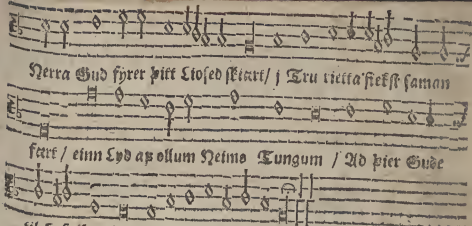 Herra Gud fyrer þitt Liosed skiært/ j Tru rietta fiekst saman
fært / einn Lyd ap ollum Heims Tungum / Ad þier Gude